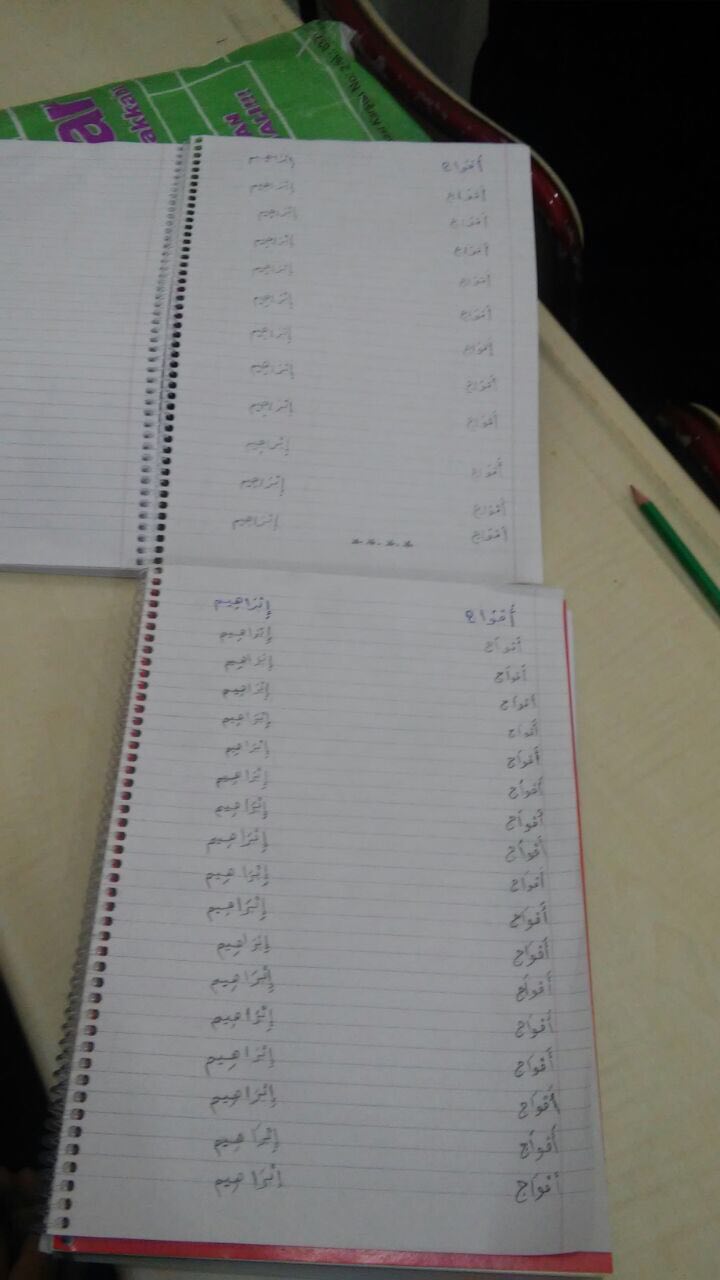 أَفْوَاج إِبْرَاهِيم
أَفْوَاج إِبْرَاهِيم
أَفْوَاج إِبْرَاهِيم
أَفْوَاج إِبْرَاهِيم
أَفْوَاج إِبْرَاهِيم
أَفْوَاج إِبْرَاهِيم
أَفْوَاج إِبْرَاهِيم
أَفْوَاج إِبْرَاهِيم
أَفْوَاج إِبْرَاهِيم
أَفْوَاج إِبْرَاهِيم
أَفْوَاج إِبْرَاهِيم
أَفْوَاج إِبْرَاهِيم
****
أَفْوَاج إِبْرَاهِيم
أَفْوَاج إِبْرَاهِيم
أَفْوَاج إِبْرَاهِيم
أَفْوَاج إِبْرَاهِيم
أَفْوَاج إِبْرَاهِيم
أَفْوَاج إِبْرَاهِيم
أَفْوَاج إِبْرَاهِيم
أَفْوَاج إِبْرَاهِيم
أَفْوَاج إِبْرَاهِيم
أَفْوَاج إِبْرَاهِيم
أَفْوَاج إِبْرَاهِيم
أَفْوَاج إِبْرَاهِيم
أَفْوَاج إِبْرَاهِيم
أَفْوَاج إِبْرَاهِيم
أَفْوَاج إِبْرَاهِيم
أَفْوَاج إِبْرَاهِيم
أَفْوَاج إِبْرَاهِيم
أَفْوَاج إِبْرَاهِيم